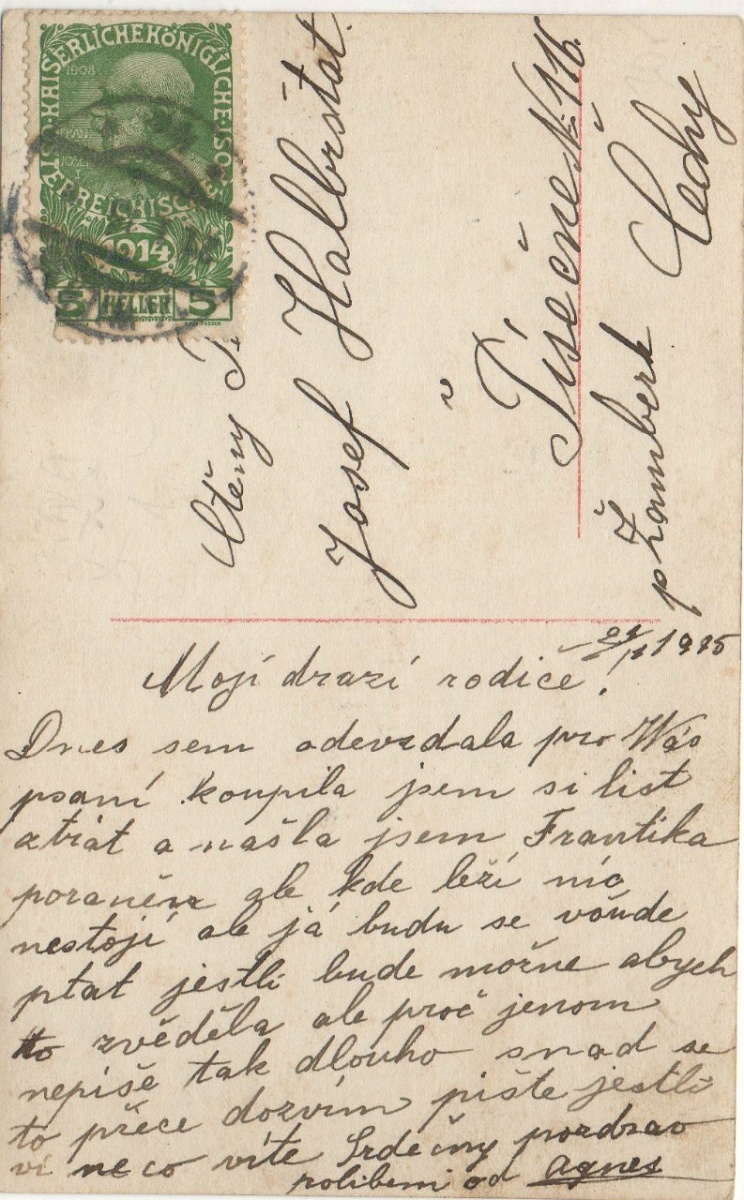 KAISERLICHE KÖNIGLICHE
ÖSTERREICHISCHE
1908
1914
5 HELLER 5
Ctěný
Josef Halbrštat.
v
Písečné N. 116.
p Žamberk Čechy
1915
Mojí drazí rodiče!
Dnes sem odevzdala pro Wás
psaní koupila jsem si list
ztrát a našla jsem Frantika
poraněn ale kde leží nic
nestojí ale já budu se všude
ptat jestli bude možne abych
to zvěděla ale proč jenom
nepíše tak dlouho snad se
to přece dozvím pište jestli
vi neco víte Srdečny pozdrav
polibeni od Agnes